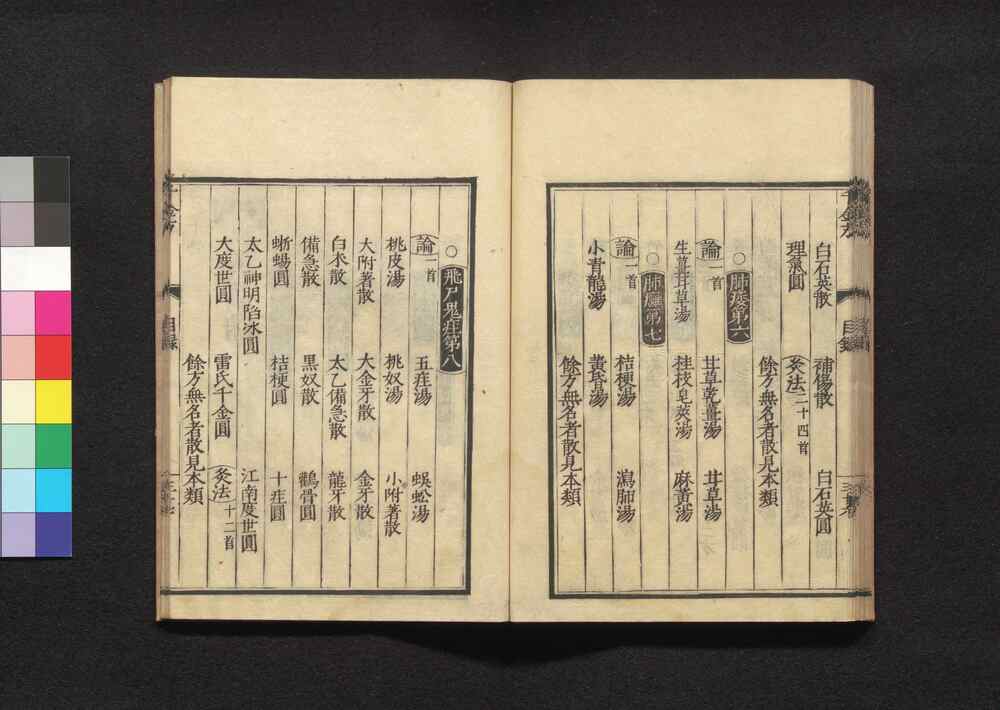 白石英散 補傷散 白石英圓
理氣圓 灸法二十四首
餘方無名者散見本類
○肺痿第六
論一首 甘草乾薑湯 甘草湯
生薑甘草湯 桂枝皂莢湯 麻黄湯
○肺癰第七
論一首 桔梗湯 瀉肺湯
小青龍湯 黄昏湯
餘方無名者散見本類
○飛尸鬼疰第八
論一首 五疰湯 蜈蚣湯
桃皮湯 桃奴湯 小附著散
大附著散 大金牙散 金牙散
白朮散 太乙備急散 龍牙散
備急散 黑奴散 鸛骨圓
蜥蜴圓 桔梗圓 十疰圓
太乙神明陷冰圓 江南度世圓
大度世圓 雷氏千金圓 灸法十二首
餘方無名者散見本類
千金方 目録